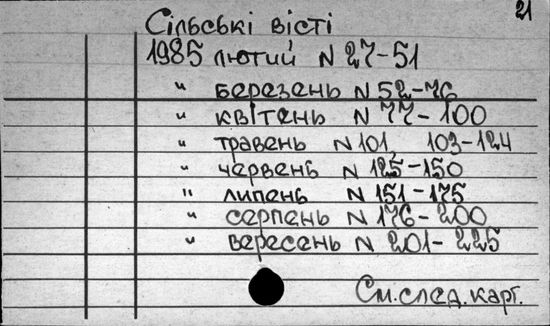 21
Сільські вісті
1985 лютий N 27-51
" березень N 52-76
" квітень N 77-100
" травень N 101, 103-124
" червень N 125-150
" липень N 151-175
" серпень N 176-200
" вересень N 201-225
См. след. карт.